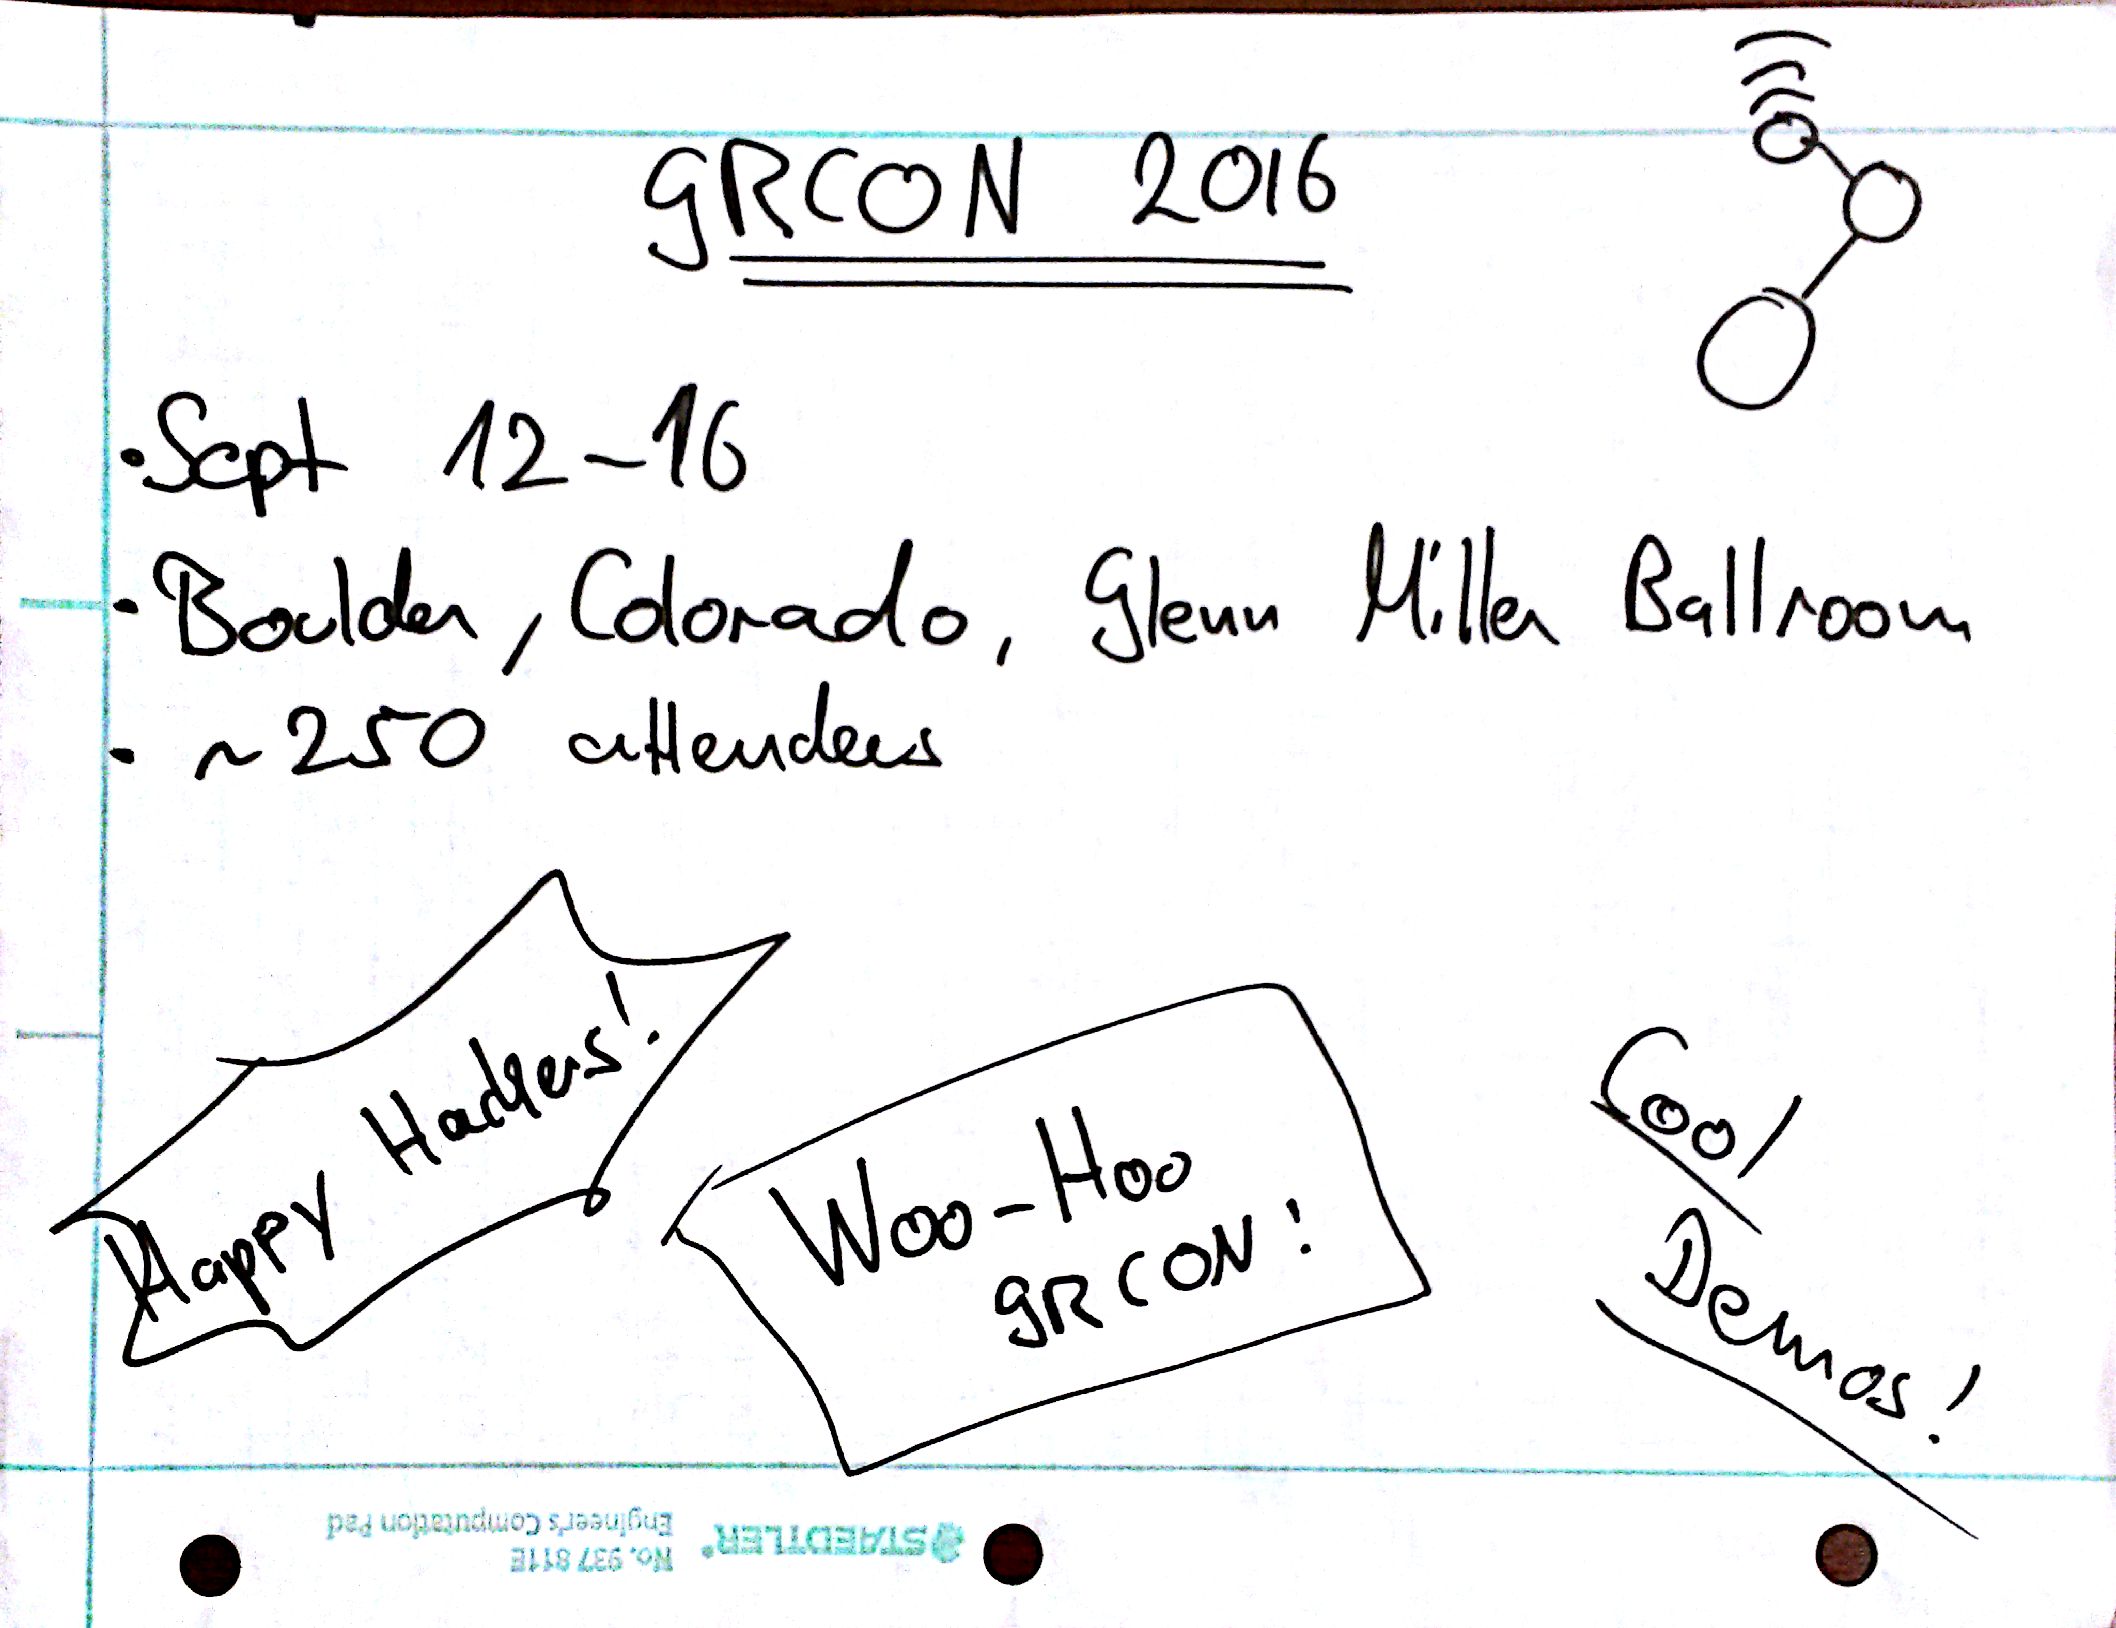 GRCON 2016
· Sept 12-16
· Boulder, Colorado, Glenn Miller Ballroom
· ~250 attendees
Happy Hackers!
Woo-Hoo
GRCON!
Cool
Demos!
STAEDTLER®
No. 937 811E
Engineer's Computation Pad